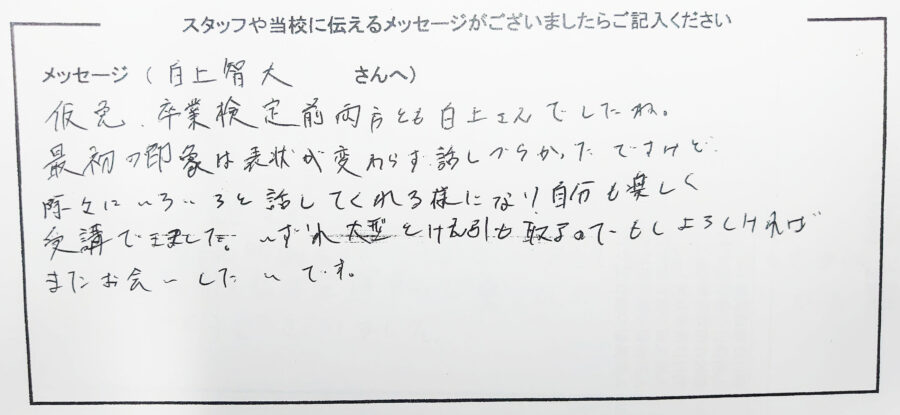 スタッフや当校に伝えるメッセージがございましたらご記入ください
メッセージ（白上智大 さんへ）
仮免、卒業検定前両方とも白上さんでしたね。
最初の印象は表状が変わらず話しづらかったですけど
除々にいろいろと話してくれる様になり自分も楽しく
受講できました。いずれ大型とけん引も取るのでもしよろしければ
またお会いしたいです。